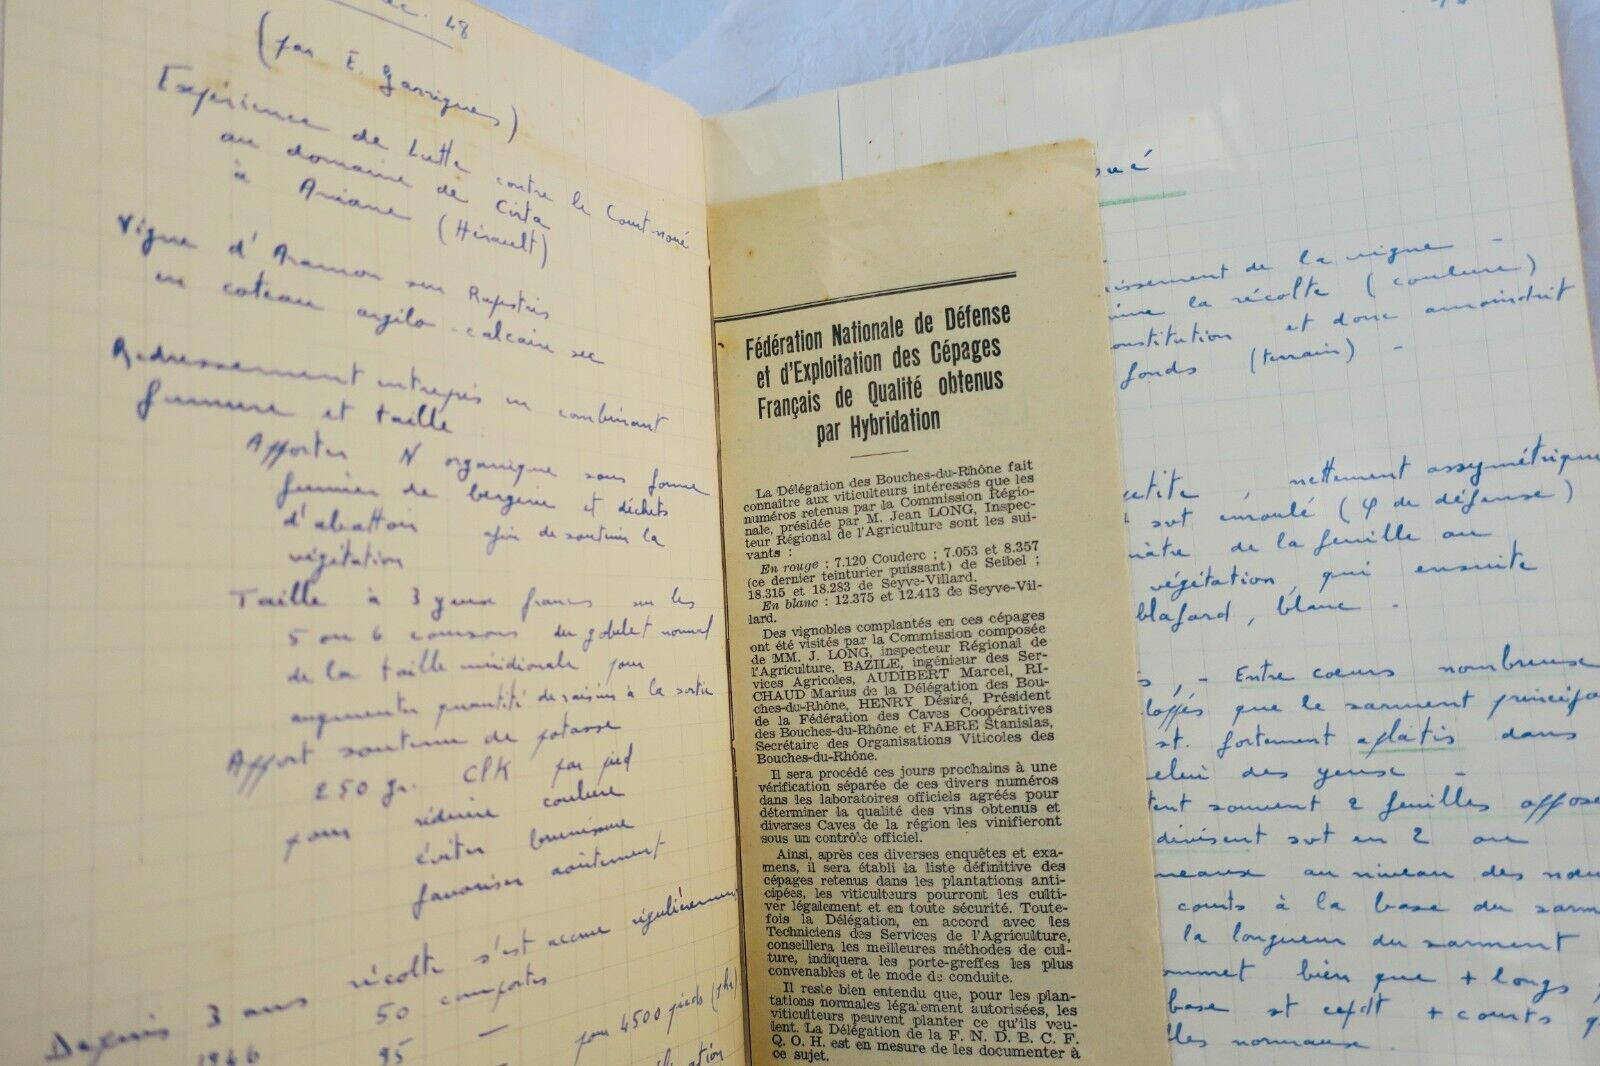 48
(par E. Garrigues)
Expérience de Lutte contre le Court-noué
au domaine de Cista
à Aniane (Hérault)
Vigne d'Aramon sur Rupestris
en coteau argilo-calcaire sec
Redressement entrepris en combinant
fumure et taille
Apporter N organique sous forme
fumier de bergerie et déchets
d'abattoir afin de soutenir la
végétation
Taille à 3 yeux francs sur les
5 ou 6 coursons du gobelet normal
de la taille méridionale pour
augmenter quantité de raisins à la sortie
Apport soutenu de potasse
250 gr. ClK par pied
pour réduire coulure
éviter brunissure
favoriser aoûtement
Depuis 3 ans récolte s'est accrue régulièrement
50 comportes
1946 95 — pour 4500 pieds (1 ha)
Fédération Nationale de Défense
et d'Exploitation des Cépages
Français de Qualité obtenus
par Hybridation
La Délégation des Bouches-du-Rhône fait
connaître aux viticulteurs intéressés que les
numéros retenus par la Commission Régio-
nale, présidée par M. Jean LONG, Inspec-
teur Régional de l'Agriculture sont les sui-
vants :
En rouge : 7.120 Couderc ; 7.053 et 8.357
(ce dernier teinturier puissant) de Seibel ;
18.315 et 18.283 de Seyve-Villard.
En blanc : 12.375 et 12.413 de Seyve-Vil-
lard.
Des vignobles complantés en ces cépages
ont été visités par la Commission composée
de MM. J. LONG, inspecteur Régional de
l'Agriculture, BAZILE, ingénieur des Ser-
vices Agricoles, AUDIBERT Marcel, RI-
CHAUD Marius de la Délégation des Bou-
ches-du-Rhône, HENRY Désiré, Président
de la Fédération des Caves Coopératives
des Bouches-du-Rhône et FABRE Stanislas,
Secrétaire des Organisations Viticoles des
Bouches-du-Rhône.
Il sera procédé ces jours prochains à une
vérification séparée de ces divers numéros
dans les laboratoires officiels agréés pour
déterminer la qualité des vins obtenus et
diverses Caves de la région les vinifieront
sous un contrôle officiel.
Ainsi, après ces diverses enquêtes et exa-
mens, il sera établi la liste définitive des
cépages retenus dans les plantations anti-
cipées, les viticulteurs pourront les culti-
ver légalement et en toute sécurité. Toute-
fois la Délégation, en accord avec les
Techniciens des Services de l'Agriculture,
conseillera les meilleures méthodes de cul-
ture, indiquera les porte-greffes les plus
convenables et le mode de conduite.
Il reste bien entendu que, pour les plan-
tations normales légalement autorisées, les
viticulteurs peuvent planter ce qu'ils veu-
lent. La Délégation de la F. N. D. B. C. F.
Q. O. H. est en mesure de les documenter à
ce sujet.
oué
issement de la vigne -
la récolte (coulure)
onstitution et donc amoindrit
fonds (terrain) -
etite, nettement assymétrique
svt enroulé (φ de défense)
de la feuille au
végétation, qui ensuite
blafard, blanc -
- Entre coeurs nombreux
que le sarment principa
st. fortement aplatis dans
celui des yeux -
souvent 2 feuilles oppose
divisent svt en 2 ou
meaux au niveau des nou
courts à la base du sarm
la longueur du sarment
ommet bien que + longs
base st cepdt + courts q
lles normaux.